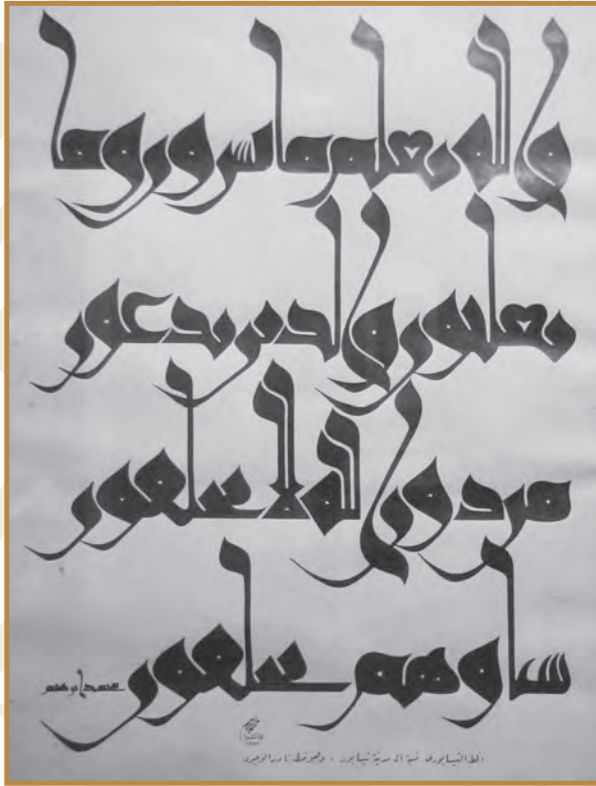 والله يعلم ما تسرون وما
تعلنون والذين يدعون
من دون الله لا يخلقون
شيئا وهم يخلقون
محمد ابرهيم
الخط النيسابورى نسبة الى مدينة نيسابور ، وهو خط نادر الوجود